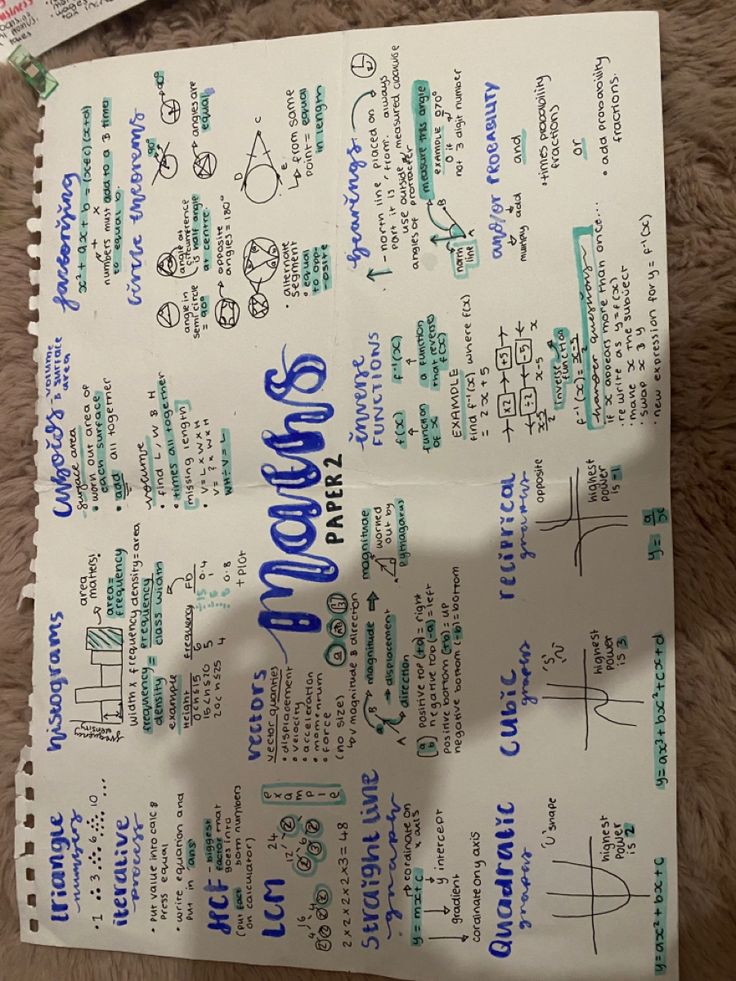 triangle
numbers
• 1 3 6 10 ...
iterative
process
• put value into calc &
press equal
• write equation and
put in 'ans'
HCF - biggest
factor that
goes into
(put fact both numbers
on calculator)
LCM
example
24
12 2
6 2
3 2
16
4 4
2 2 2 2
2 x 2 x 2 x 2 x 3 = 48
Straight line
graphs
y = mx + c
cordinate on
x axis
y intercept
gradient
cordinate on y axis
Quadratic
graphs
'U' shape
highest
power
is 2
y = ax² + bx + c
histograms
frequency
density
area
matters!
area =
frequency
width x frequency density = area
frequency
density = frequency
class width
example
Height frequency FD
0<h≤15 6 0.4
15<h≤20 5 1
20<h≤25 4 0.8
+ plot
vectors
vector quantities
• displacement
• velocity
• acceleration
• momentum
• force
(no size)
↳ magnitude & direction
A B magnitude
displacement
direction
magnitude
worked
out by
pythagarus
(a
b) positive top (+a) = right
negative top (-a) = left
positive bottom (+b) = up
negative bottom (-b) = bottom
Cubic
graphs
'S'
highest
power
is 3
y = ax³ + bx² + cx + d
Maths
PAPER 2
cuboids volume
& surface
area
surface area
• work out area of
each surface
• add all together
volume
• find L, W & H
• times all together
missing length
• V = L x W x H
V = ? x W x H
WH ÷ V = L
inverse
FUNCTIONS
f(x) f⁻¹(x)
function
of x
a function
that reverses
f(x)
EXAMPLE
find f⁻¹(x) where f(x)
= 2x + 5
x2 +5
÷2 -5
x-5
2
x-5 x
inverse
function
f⁻¹(x) = x-5
2
harder questions
if x appears more than once...
• re write as y = f(x)
• make x the subject
• swap x & y
• new expression for y = f⁻¹(x)
reciprical
graphs
opposite
highest
power
is -1
y = a
x
factorising
x² + ax + b = (x+c)(x+d)
+ x
numbers must add to a & times
to equal b.
Circle theorems
angle in
semi circle
= 90°
angle at
circumference
is half angle
at centre.
90°
90°
angles are
equal
opposite
angles = 180°
• alternate
segment
• equal
to opp-
osite
D
E
C
from same
point = equal
in length
bearings
- north line placed on
part it is 'from'. always
use outside measured clockwise
angles of protractor
north
line
A
B
measure this angle
EXAMPLE 070°
0 if
not 3 digit number
and/or PROBABILITY
multiply add
and
• times probability
fractions)
or
• add probability
fractions.